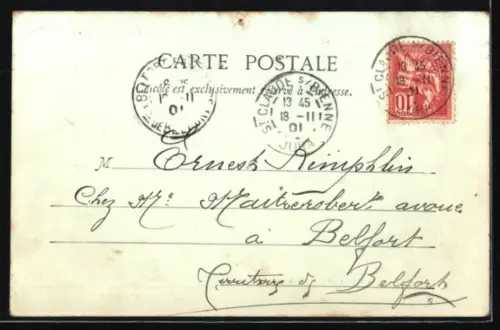 CARTE POSTALE
Ce côté est exclusivement réservé à l'adresse.
ST CLAUDE S/ BIENNE
13 45
18 -11
01
JURA
ST CLAUDE S/ BIENNE
13 45
18 -11
01
10
M Ernest Kimphlin
Chez Me. Maitrerobert avoué
à Belfort
Territoire de Belfort
S